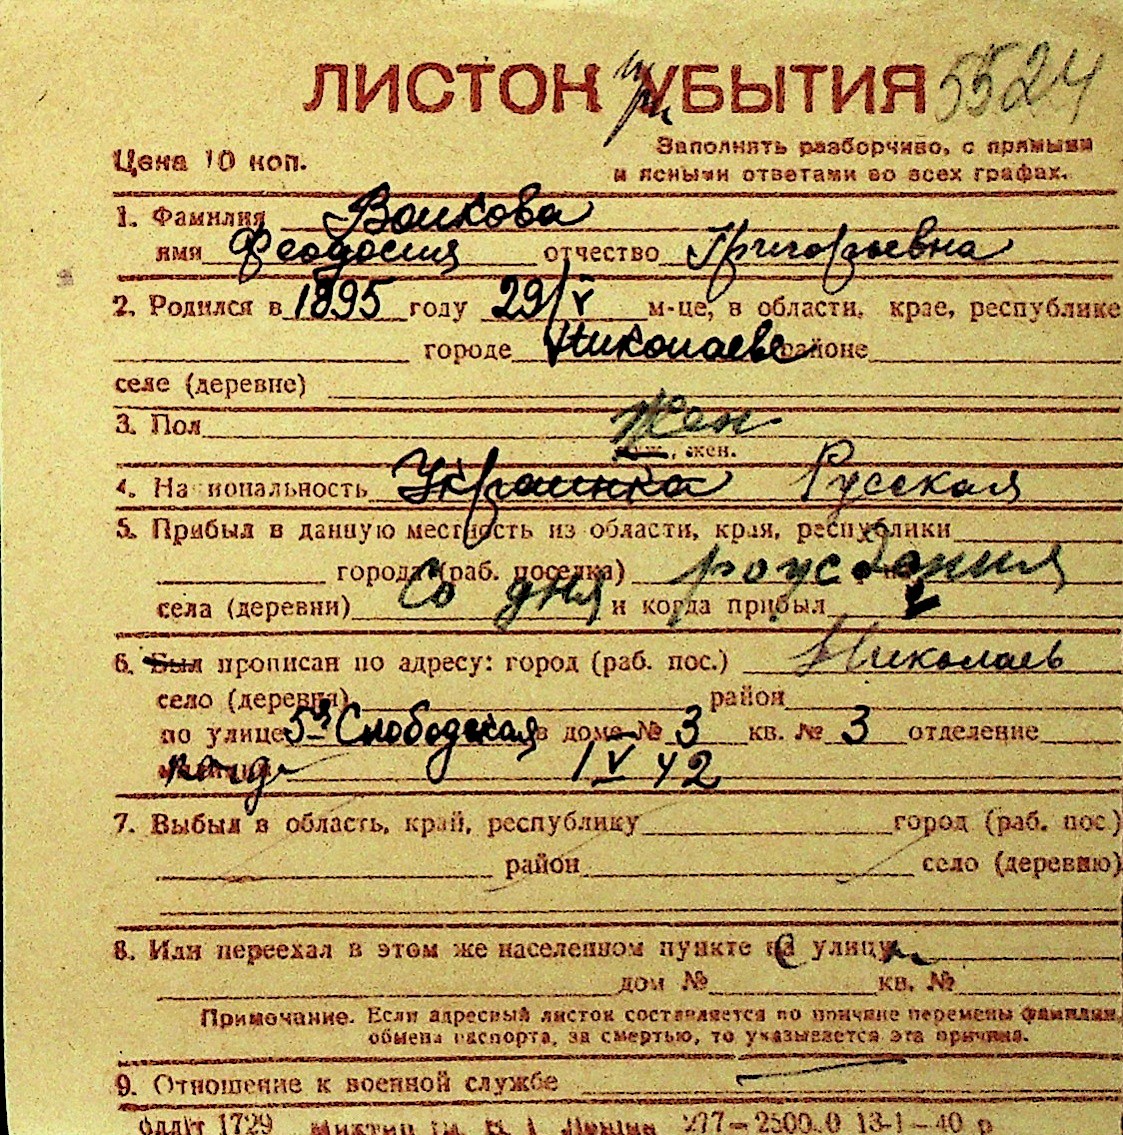 ЛИСТОК УБЫТИЯ 5524
Цена 10 коп.
Заполнять разборчиво, с прямыми
и ясными ответами во всех графах.
1. Фамилия Волкова
имя Феодосия отчество Григорьевна
2. Родился в 1895 году 29/V м-це, в области, крае, республике
городе Николаеве районе
селе (деревне)
3. Пол Жен
муж., жен.
4. Национальность Украинка Русская
5. Прибыл в данную местность из области, края, республики
города (раб. поселка) рождения
села (деревни) Со дня и когда прибыл
6. Был прописан по адресу: город (раб. пос.) Николаев
село (деревня) район
по улице 5я Слободская в доме № 3 кв. № 3 отделение
милиции 1 V 42
7. Выбыл в область, край, республику город (раб. пос.)
район село (деревню)
8. Или переехал в этом же населенном пункте на улицу
дом № кв. №
Примечание. Если адресный листок составляется по причине перемены фамилии,
обмена паспорта, за смертью, то указывается эта причина.
9. Отношение к военной службе
1729 277—2500.0 13-1—40 р